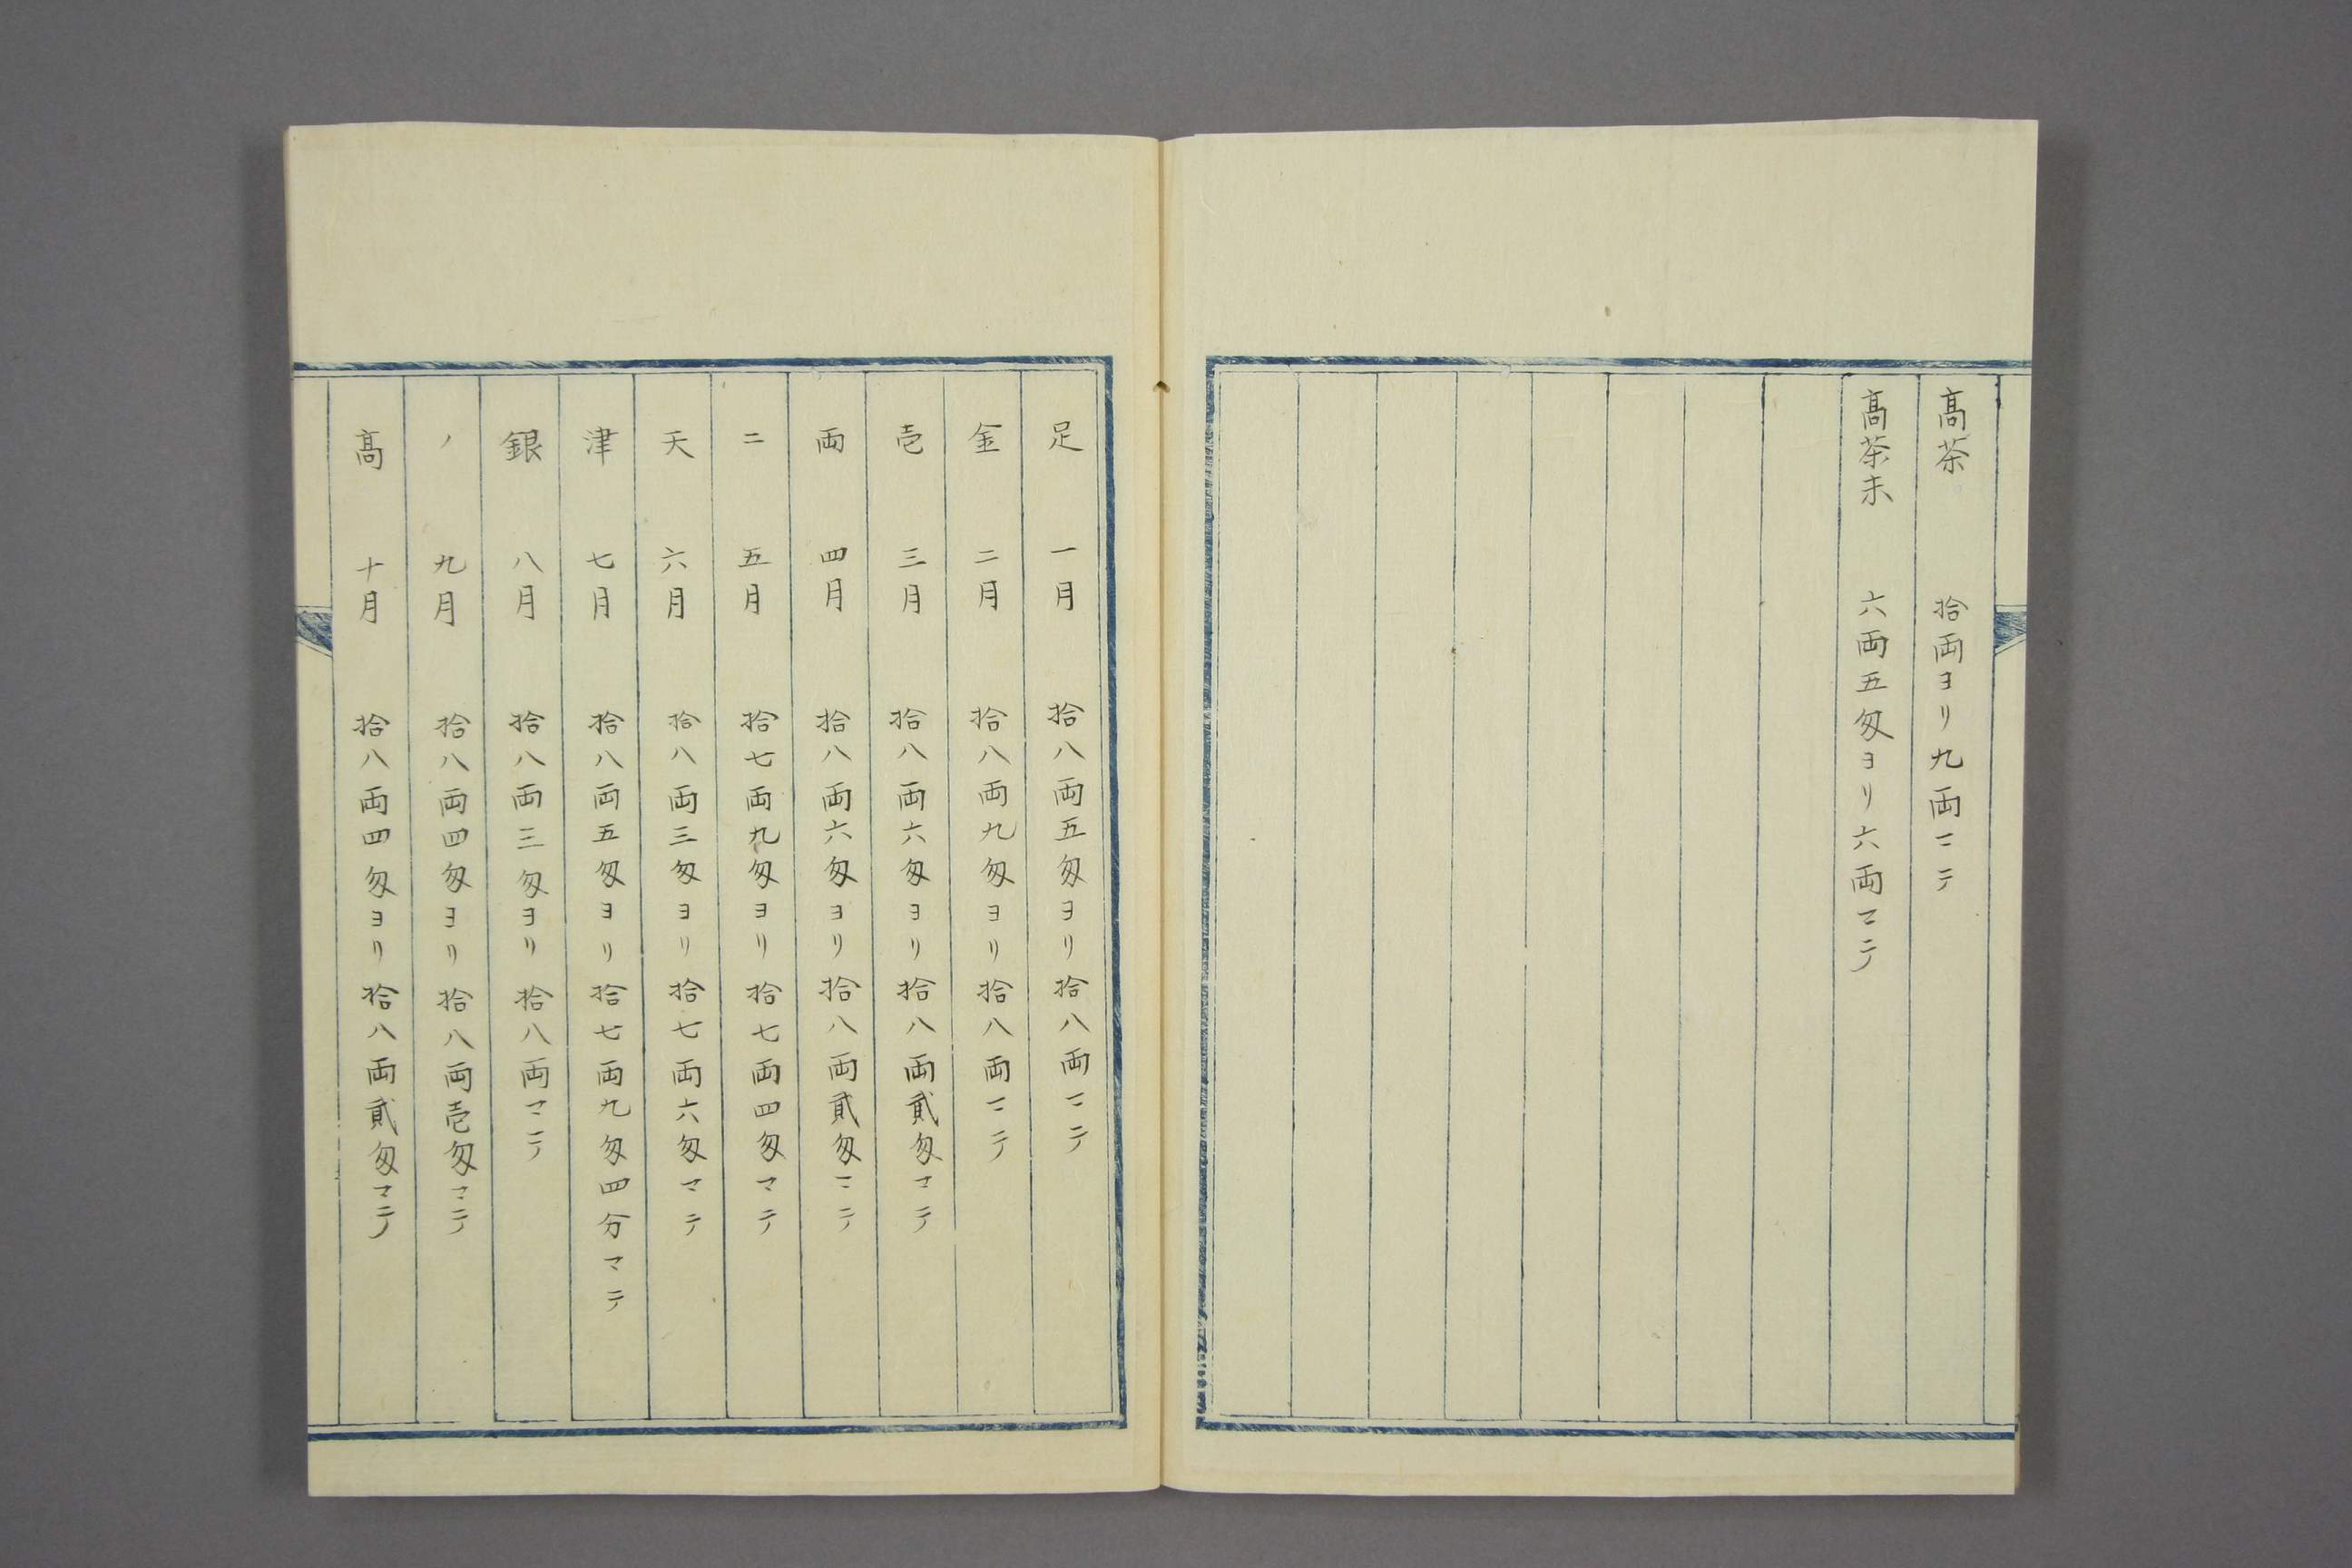 髙茶 拾両ヨリ九両マテ
髙茶末 六両五匁ヨリ六両マテ
足 一月 拾八両五匁ヨリ拾八両マテ
金 二月 拾八両九匁ヨリ拾八両マテ
壱 三月 拾八両六匁ヨリ拾八両貳匁マテ
両 四月 拾八両六匁ヨリ拾八両貳匁マテ
ニ 五月 拾七両九匁ヨリ拾七両四匁マテ
天 六月 拾八両三匁ヨリ拾七両六匁マテ
津 七月 拾八両五匁ヨリ拾七両九匁四分マテ
銀 八月 拾八両三匁ヨリ拾八両マテ
ノ 九月 拾八両四匁ヨリ拾八両壱匁マテ
髙 十月 拾八両四匁ヨリ拾八両貳匁マテ